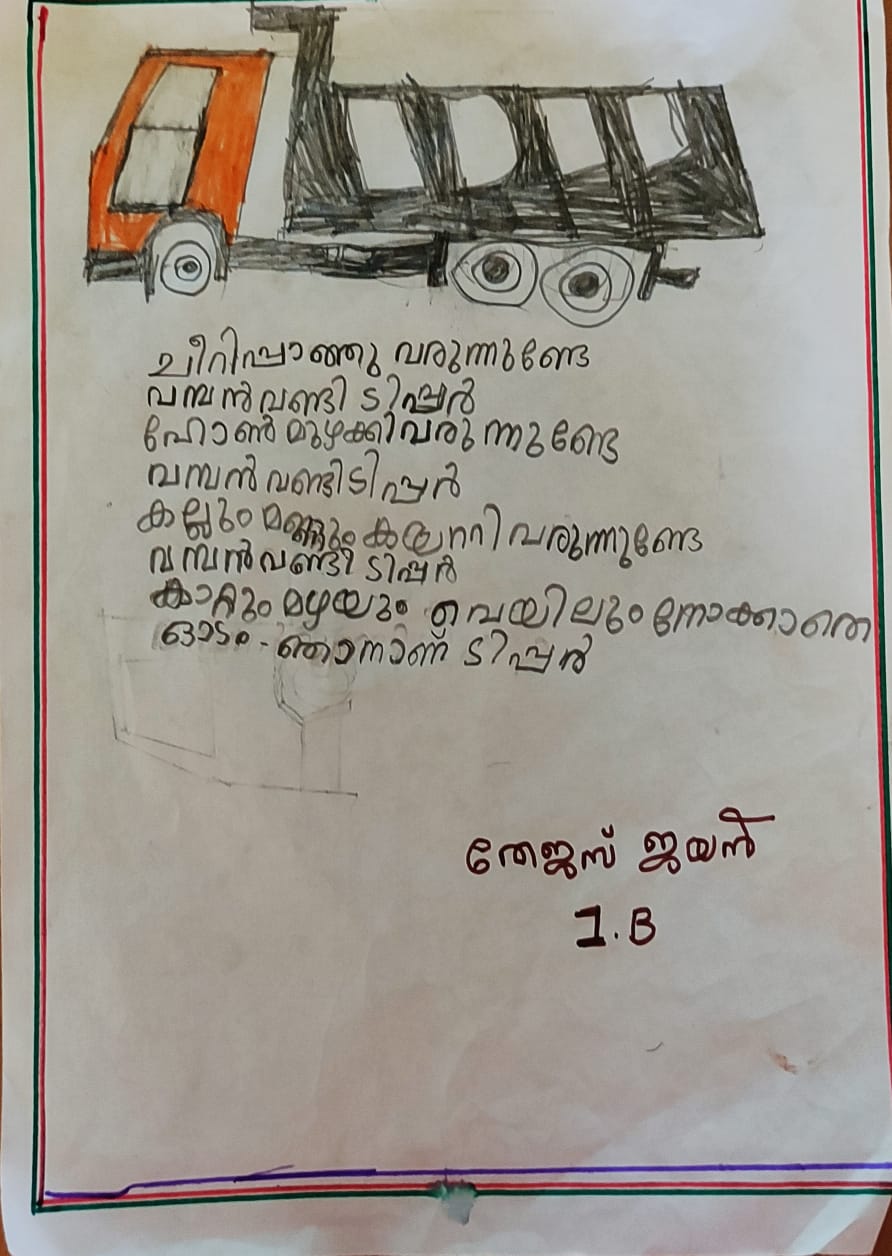 ചീറിപ്പാഞ്ഞു വരുന്നുണ്ടേ
വമ്പൻവണ്ടി ടിപ്പർ
ഹോൺ മുഴക്കിവരുന്നുണ്ടേ
വമ്പൻ വണ്ടിടിപ്പർ
കല്ലും മണ്ണും കയററി വരുന്നുണ്ടേ
വമ്പൻവണ്ടി ടിപ്പർ
കാറ്റും മഴയും വെയിലും നോക്കാതെ
ഓടും - ഞാനാണ് ടിപ്പർ
തേജസ് ജയൻ
1.B